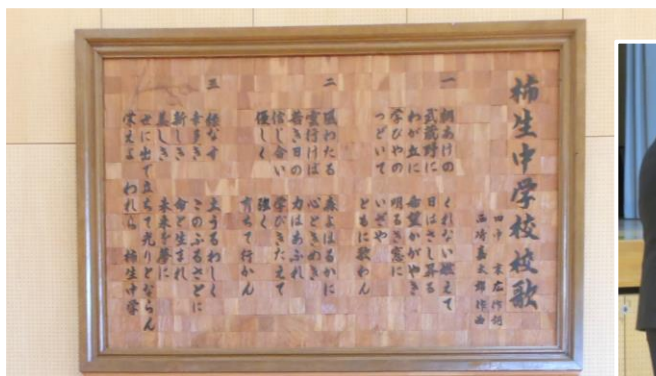 柿生中学校校歌
田中 末広作詞
西崎嘉太郎作曲
一
朝あけの くれない燃えて
武蔵野に 日はさし昇る
わが立に 希望かがやき
学びやの 明るき窓に
つどいて いざや
ともに歌わん
二
風わたる 森よはるかに
雲行けば 心ときめき
若き日の 力はあふれ
信じ合い 学びきたえて
優しく 強く
育ちて行かん
三
柿なす 土うるわしく
幸多き このふるさとに
新しき 命と生まれ
美しき 未来を夢に
世に出で立ちて光りとならん
栄えよ われら 柿生中学